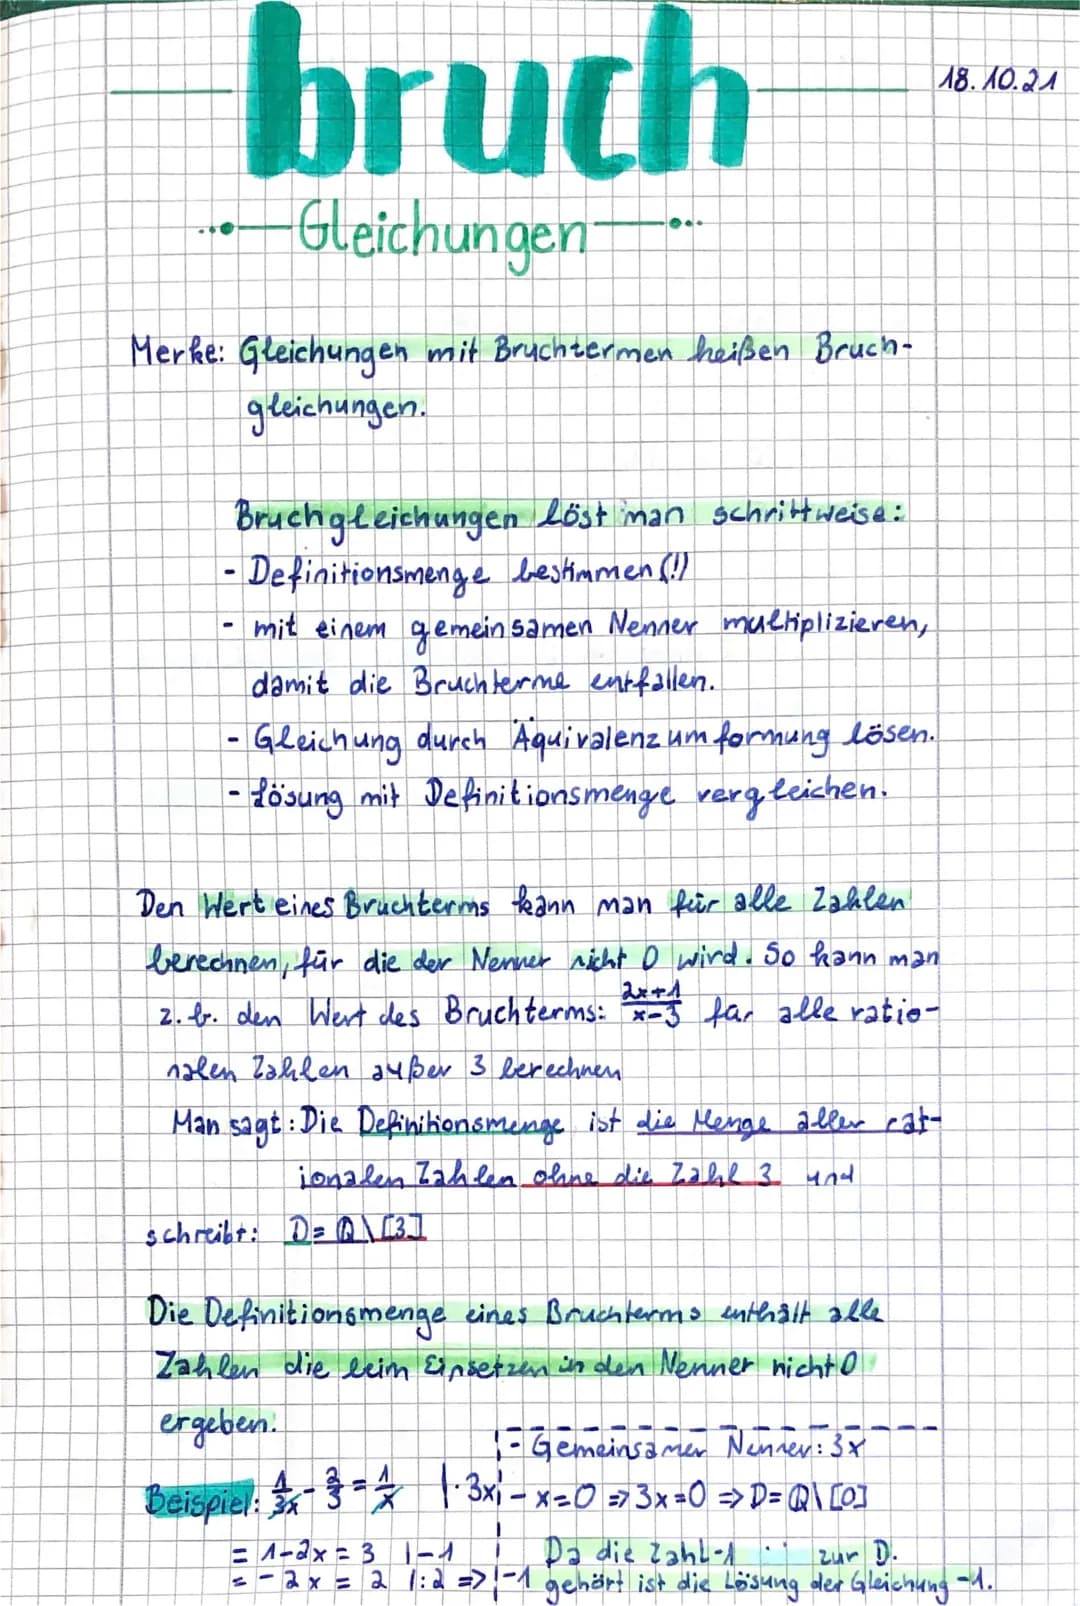 bruch
18.10.21
Gleichungen
Merke: Gleichungen mit Bruchtermen heißen Bruch-
gleichungen.
Bruchgleichungen löst man schrittweise:
- Definitionsmenge bestimmen (!)
- mit einem gemeinsamen Nenner multiplizieren,
damit die Bruchterme entfallen.
- Gleichung durch Äquivalenzumformung lösen.
- Lösung mit Definitionsmenge vergleichen.
Den Wert eines Bruchterms kann man für alle Zahlen
berechnen, für die der Nenner nicht 0 wird. So kann man
z.b. den Wert des Bruchterms: (2x+1)/(x-3) für alle ratio-
nalen Zahlen außer 3 berechnen
Man sagt: Die Definitionsmenge ist die Menge aller rat-
ionalen Zahlen ohne die Zahl 3 und
schreibt: D=ℚ\[3]
Die Definitionsmenge eines Bruchterms enthält alle
Zahlen die beim Einsetzen in den Nenner nicht 0
ergeben.
- Gemeinsamer Nenner: 3x
Beispiel: 1/3x - 2/3 = 1/x |·3x
- x=0 => 3x=0 => D=ℚ\[0]
= 1-2x = 3 |-1
Da die Zahl -1 zur D.
= -2x = 2 |:2 => -1
gehört ist die Lösung der Gleichung -1.